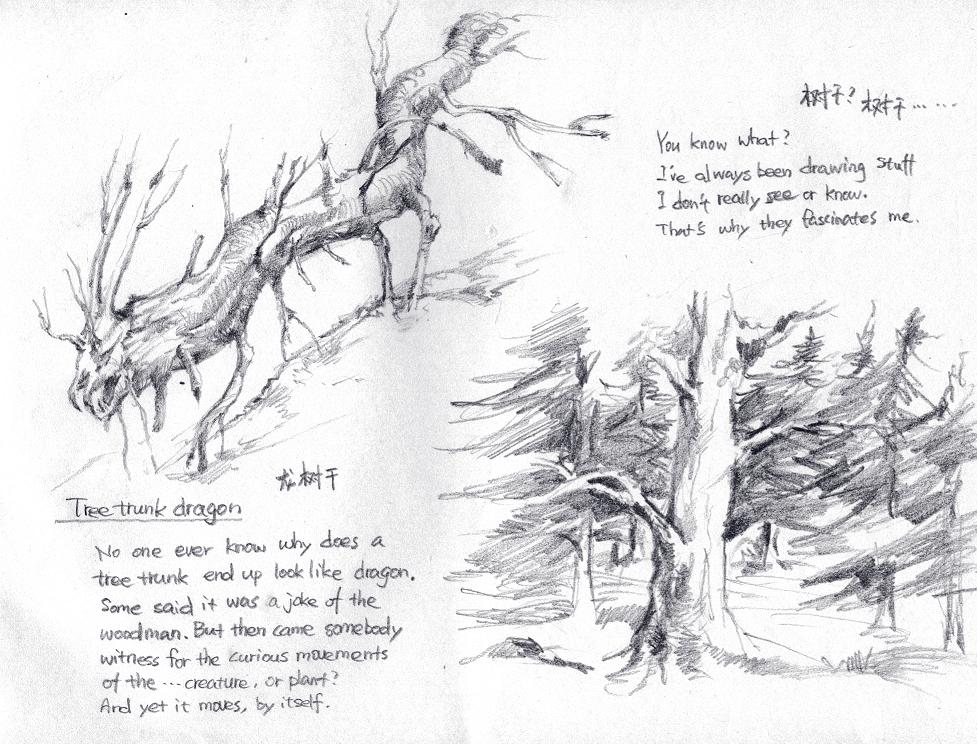 树干? 树干……
You know what?
I've always been drawing stuff
I don't really see or know.
That's why they fascinates me.
龙树干
Tree trunk dragon
No one ever know why does a
tree trunk end up look like dragon.
Some said it was a joke of the
woodman. But then came somebody
witness for the curious movements
of the ... creature, or plant?
And yet it moves, by itself.